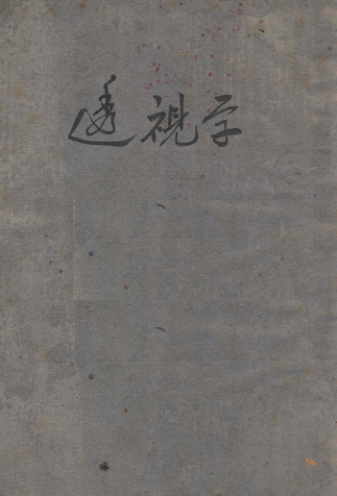 透視学